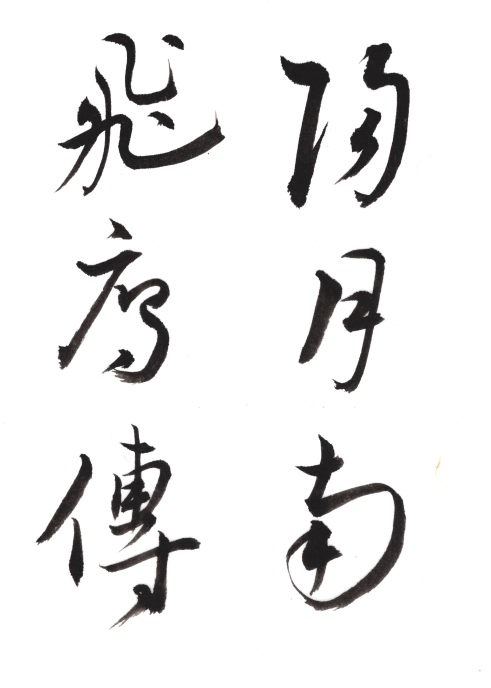 陽月南
飛鴈傳